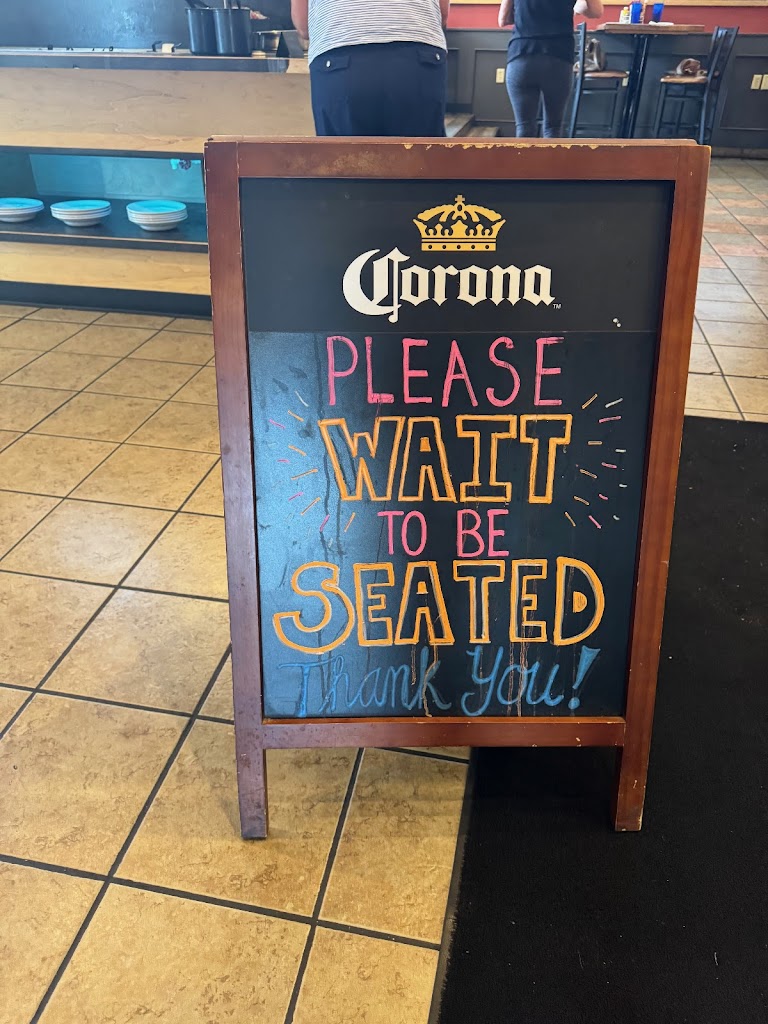 Corona
PLEASE
WAIT
TO BE
SEATED
Thank You!